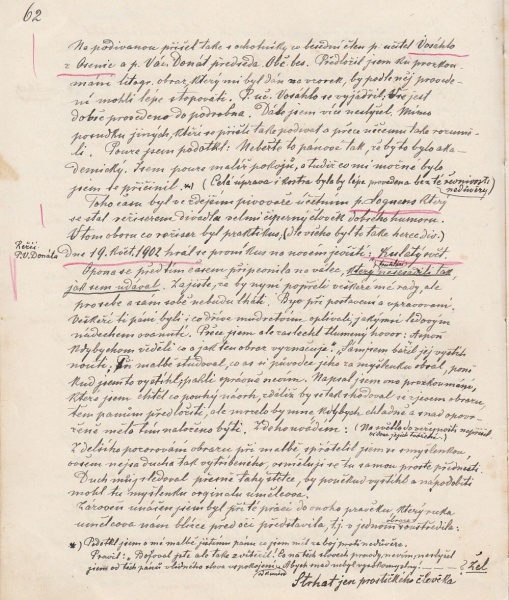 62
Na podívanou přišel také s ochotníky ze besední čten p. učitel Vosáhlo
z Osenic a p. Vác. Donát předseda Obč. bes. Předložil jsem ku prozkou-
mání litogr. obraz, který mi byl dán na vzorek, by podle něj provede-
ní mohli lépe stopovati. P. uč. Vosáhlo se vyjádřil, vše jest
dobře provedeno do podrobna. Dále jsem víc neslyšel. Mimo
posudku jiných, kteří se přišli také podívat a práce něčemu také rozumě-
li. Pouze jsem podotkl: Neberte to pánové tak, že by to bylo aka-
demicky. Jsem pouze malíř pokojů, a tudíž co mi možné bylo
jsem se přičinil. *) (Celá úprava i kostra byla by lépe provedena bez té řevnivosti
nedůvěry)
Toho času byl ve zdejším pivovaře účetním p. který
se stal režiserem divadla velmi čiperný člověk dobrého humoru.
V tom oboru co režiser byl praktikus, (dle všeho byl to také herec div.
Režii
P. V. Donáta
Dne 19. Květ. 1902 hrál se první kus na novém jevišti. Kulatý svět.
Opona se před tím časem připevnila na válec, který neosvědčil se tak,
jak jsem udával. Zajisté, ca by nyní popřáli všeliké mé rady, ale
pro sebe a sám sobě nebudu lháti. Byo při postavení a upravování.
Veškeří ti páni byli, co dříve modretím oplývali, jakýmsi ledovým
nádechem ovanuti. Přece jsem ale zaslechl tlumený hovor: Aspoň
kdybychom věděli co a jak ten obraz vyznačuje. Sám jsem bažil jej vystih-
nouti. Při malbě studoval, co as u původce jeho za myšlenku obrál, poně
kud jsem to vystihl, pakli správně nevím. Napsal jsem ono prozkoumání,
které jsem chtěl co pouhý návrh, zdáliž by se tak shodoval se zjevem obrazu,
těm pánům předložiti, ale mrzelo by mne kdybych chladně a snad opovr-
ženě mělo tím naloženo býti. Zdo honvédem: (Na světlo do veřejnosti nepřišel
Z delšího pozorování obrazce při malbě spřátelil jsem se s myšlenkou,
ovšem nejsa ducha tak vytříbeného, osměluji se tu samou prostě přednésti.
Duch můj sledoval přesné tahy štětce, by poněkud vystihl a napodobiti
mohl tu myšlenku orginalu umělcova.
Zároveň unášen jsem byl při té práci do onoho pravěku, který ruka
umělcova nám blíže před oči představila, tj. v jednom obraze soustředila:
*) Podotkl jsem s mé malbě jistému pánu co jsem měl za boj proti nedůvěře.
Pravil: "Bojoval jste ale také zvítězil! Co na těch slovech pravdy, nevím, neslyšel
jsem od těch pánů vlídného slova uspokojení. Abych snad nebyl vyzdvižený — — — ? Žel
Strhat jen prostičkého človíčka